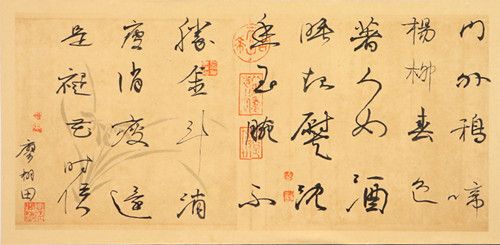 門外鴉啼
楊柳春色
著人如酒
睡起熨沈
香玉腕不
勝金斗消
瘦消瘦還
是褪花時候
廖田